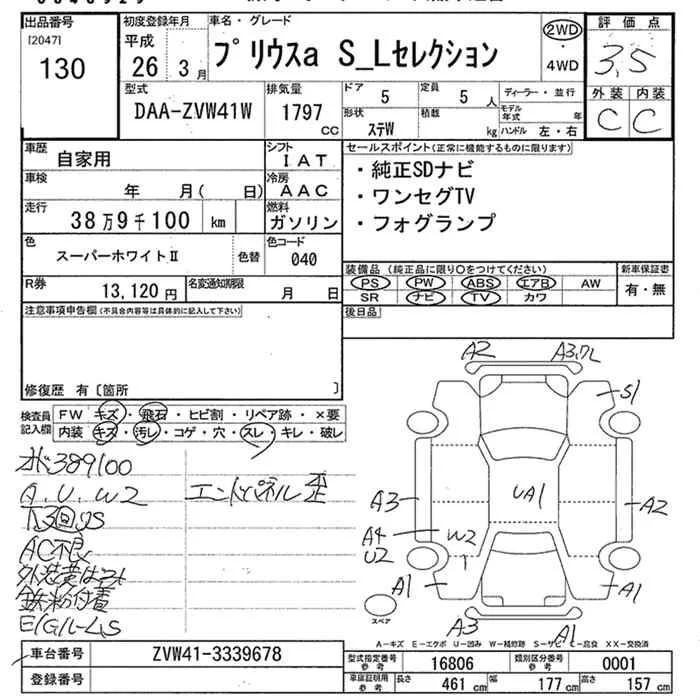 出品番号
[2047]
130
初度登録年月
平成
26 3月
車名・グレード
プリウスa S_Lセレクション
2WD
・
4WD
評価点
3,5
外装 内装
C C
型式
DAA-ZVW41W
排気量
1797
CC
ドア
5
定員
5人
ディーラー・並行
形状
ステW
積載
kg
モデル年式
年
ハンドル 左・右
車歴
自家用
シフト
IAT
車検
年 月( 日)
冷房
AAC
走行
38万9千100 km
燃料
ガソリン
色
スーパーホワイトⅡ
色替
色コード
040
R券
13,120円
名変通知期限
月 日
セールスポイント(正常に機能するものに限ります)
・純正SDナビ
・ワンセグTV
・フォグランプ
装備品(純正品に限り○をつけてください)
PS PW ABS エアB AW
SR ナビ TV カワ
新車保証書
有・無
後日品
注意事項申告欄(不具合内容等は具体的に記入して下さい)
修復歴 有〔箇所 〕
検査員
記入欄
FW キズ・飛石・ヒビ割・リペア跡・×要
内装 キズ・汚レ・コゲ・穴・スレ・キレ・破レ
389100
A.U.W2
エンドパネル歪
AC不良
鉄粉付着
A2
S1
A3
UA1
A2
A4
U2
W2
A1
A1
A3
A1
スペア
A-キズ E-エクボ U-凹み W-補修跡 S-サビ C-腐食 XX-交換済
車台番号
ZVW41-3339678
登録番号
型式指定番号
参考
16806
類別区分番号
参考
0001
車庫証明用
参考
長さ
461 cm
幅
177 cm
高さ
157 cm